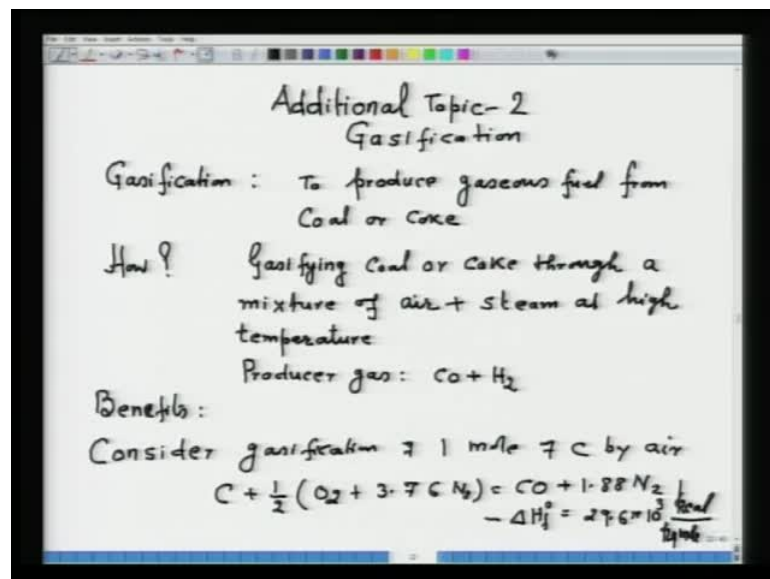 Additional Topic-2
Gasification
Gasification : To produce gaseous fuel from
Coal or Coke
How? Gasifying Coal or Coke through a
mixture of air + steam at high
temperature
Producer gas : CO + H2
Benefits :
Consider gasification of 1 mole of C by air
C + 1/2 (O2 + 3.76 N2) = CO + 1.88 N2
- ΔHf° = 29.6 * 10^3 kcal / kg mole